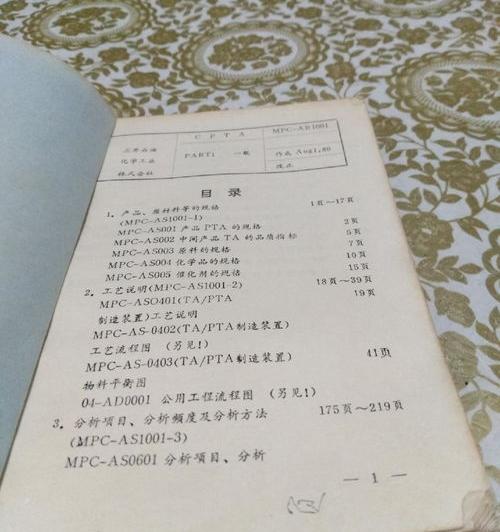 三井石油
化学工业
株式会社
C P T A
PART1 一般
MPC-AB1001
作成 Aug1,80
改正
目录
1. 产品、原材料等的规格 1页～17页
(MPC-AS1001-1)
MPC-AS001 产品 PTA 的规格 2页
MPC-AS002 中间产品 TA 的品质指标 5页
MPC-AS003 原料的规格 7页
MPC-AS004 化学品的规格 10页
MPC-AS005 催化剂的规格 15页
2. 工艺说明(MPC-AS1001-2) 18页～39页
MPC-ASO401(TA/PTA 19页
制造装置)工艺说明
MPC-AS-0402(TA/PTA制造装置)
工艺流程图 (另见!)
MPC-AS-0403(TA/PTA制造装置) 41页
物料平衡图
04-AD0001 公用工程流程图 (另见!)
3. 分析项目、分析频度及分析方法 175页～219页
(MPC-AS1001-3)
MPC-AS0601 分析项目、分析
— 1 —